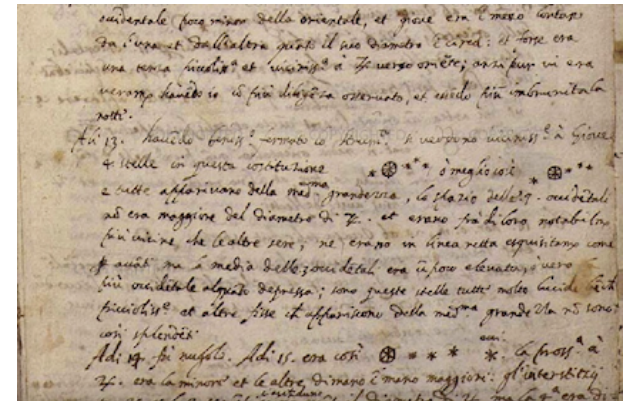 occidentale poco minor della orientale, et giove era in mezo lontan
da l'una et dall'altra quanto il suo diametro in circa: et forse era
una terza piccoliss.a et viciniss.a à ♃ verso oriēte; anzi pur vi era
veramēte havēdo io cō più diligēza osservato, et essēdo più imbrunita la
notte.
Adi 13. havēdo beniss.o fermato lo strum.o si veddono viciniss.e à Giove
4 stelle in questa costituzione * ⊛ * * * ò meglio così * ⊛ * * *
e tutte apparivano della med.ma grandezza, lo spazio delle 3. occidētali
nō era maggiore del diametro di ♃. et erano frà di loro notabilm.
più vicine che le altre sere; ne erano in linea retta esquisitamē come
p avāti ma la media delle 3 occidētali era ū poco elevata, ò vero la
più occidētale alquāto depressa; sono queste stelle tutte molto lucide bēch
piccoliss.e et altre fisse che appariscono della med.ma grandezza nō sono
così splendēti.
Adi 14 fù nugolo. Adi 15. era così ⊛ * * * * la pross.a à
♃. era la minore et le altre di mano ī mano maggiori: gl'interstizij